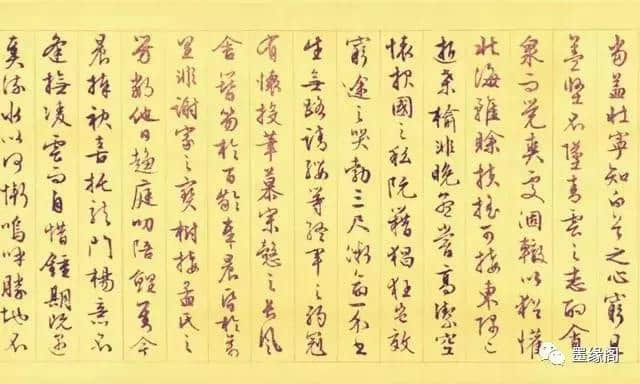 當益壯寧知白首之心窮且
益堅不墜青雲之志酌貪
泉而覺爽處涸轍以猶懽
北海雖賒扶搖可接東隅已
逝桑榆非晚孟嘗高潔空
懷報國之阮籍猖狂豈效
窮途之哭勃三尺微命一介書
生無路請纓等終軍之弱冠
有懷投筆慕宗愨之長風
舍簪笏於百齡奉晨昏於萬
里非謝家之寶樹接孟氏之
芳鄰他日趨庭叨陪鯉對今
晨捧袂喜托龍門楊意不
逢撫凌雲而自惜鍾期既遇
奏流水以何慚嗚呼勝地不
墨缘阁